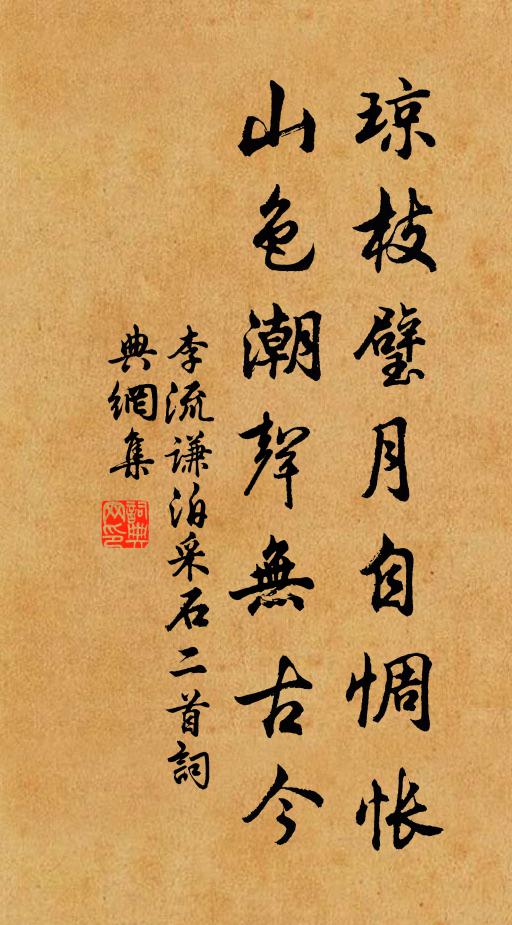 琼枝璧月自惆怅
山色潮聲無古今
李流谦泊采石二首詞
典網集
詞典网印